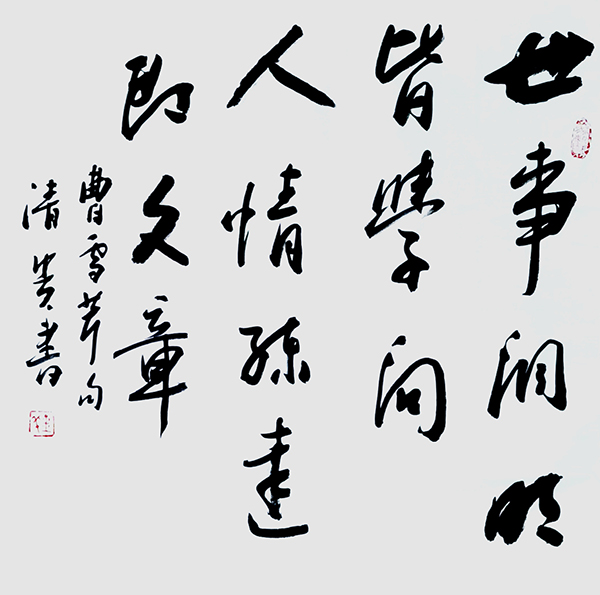 世事洞明
皆學问
人情练達
即文章
曹雪芹句
清贵書